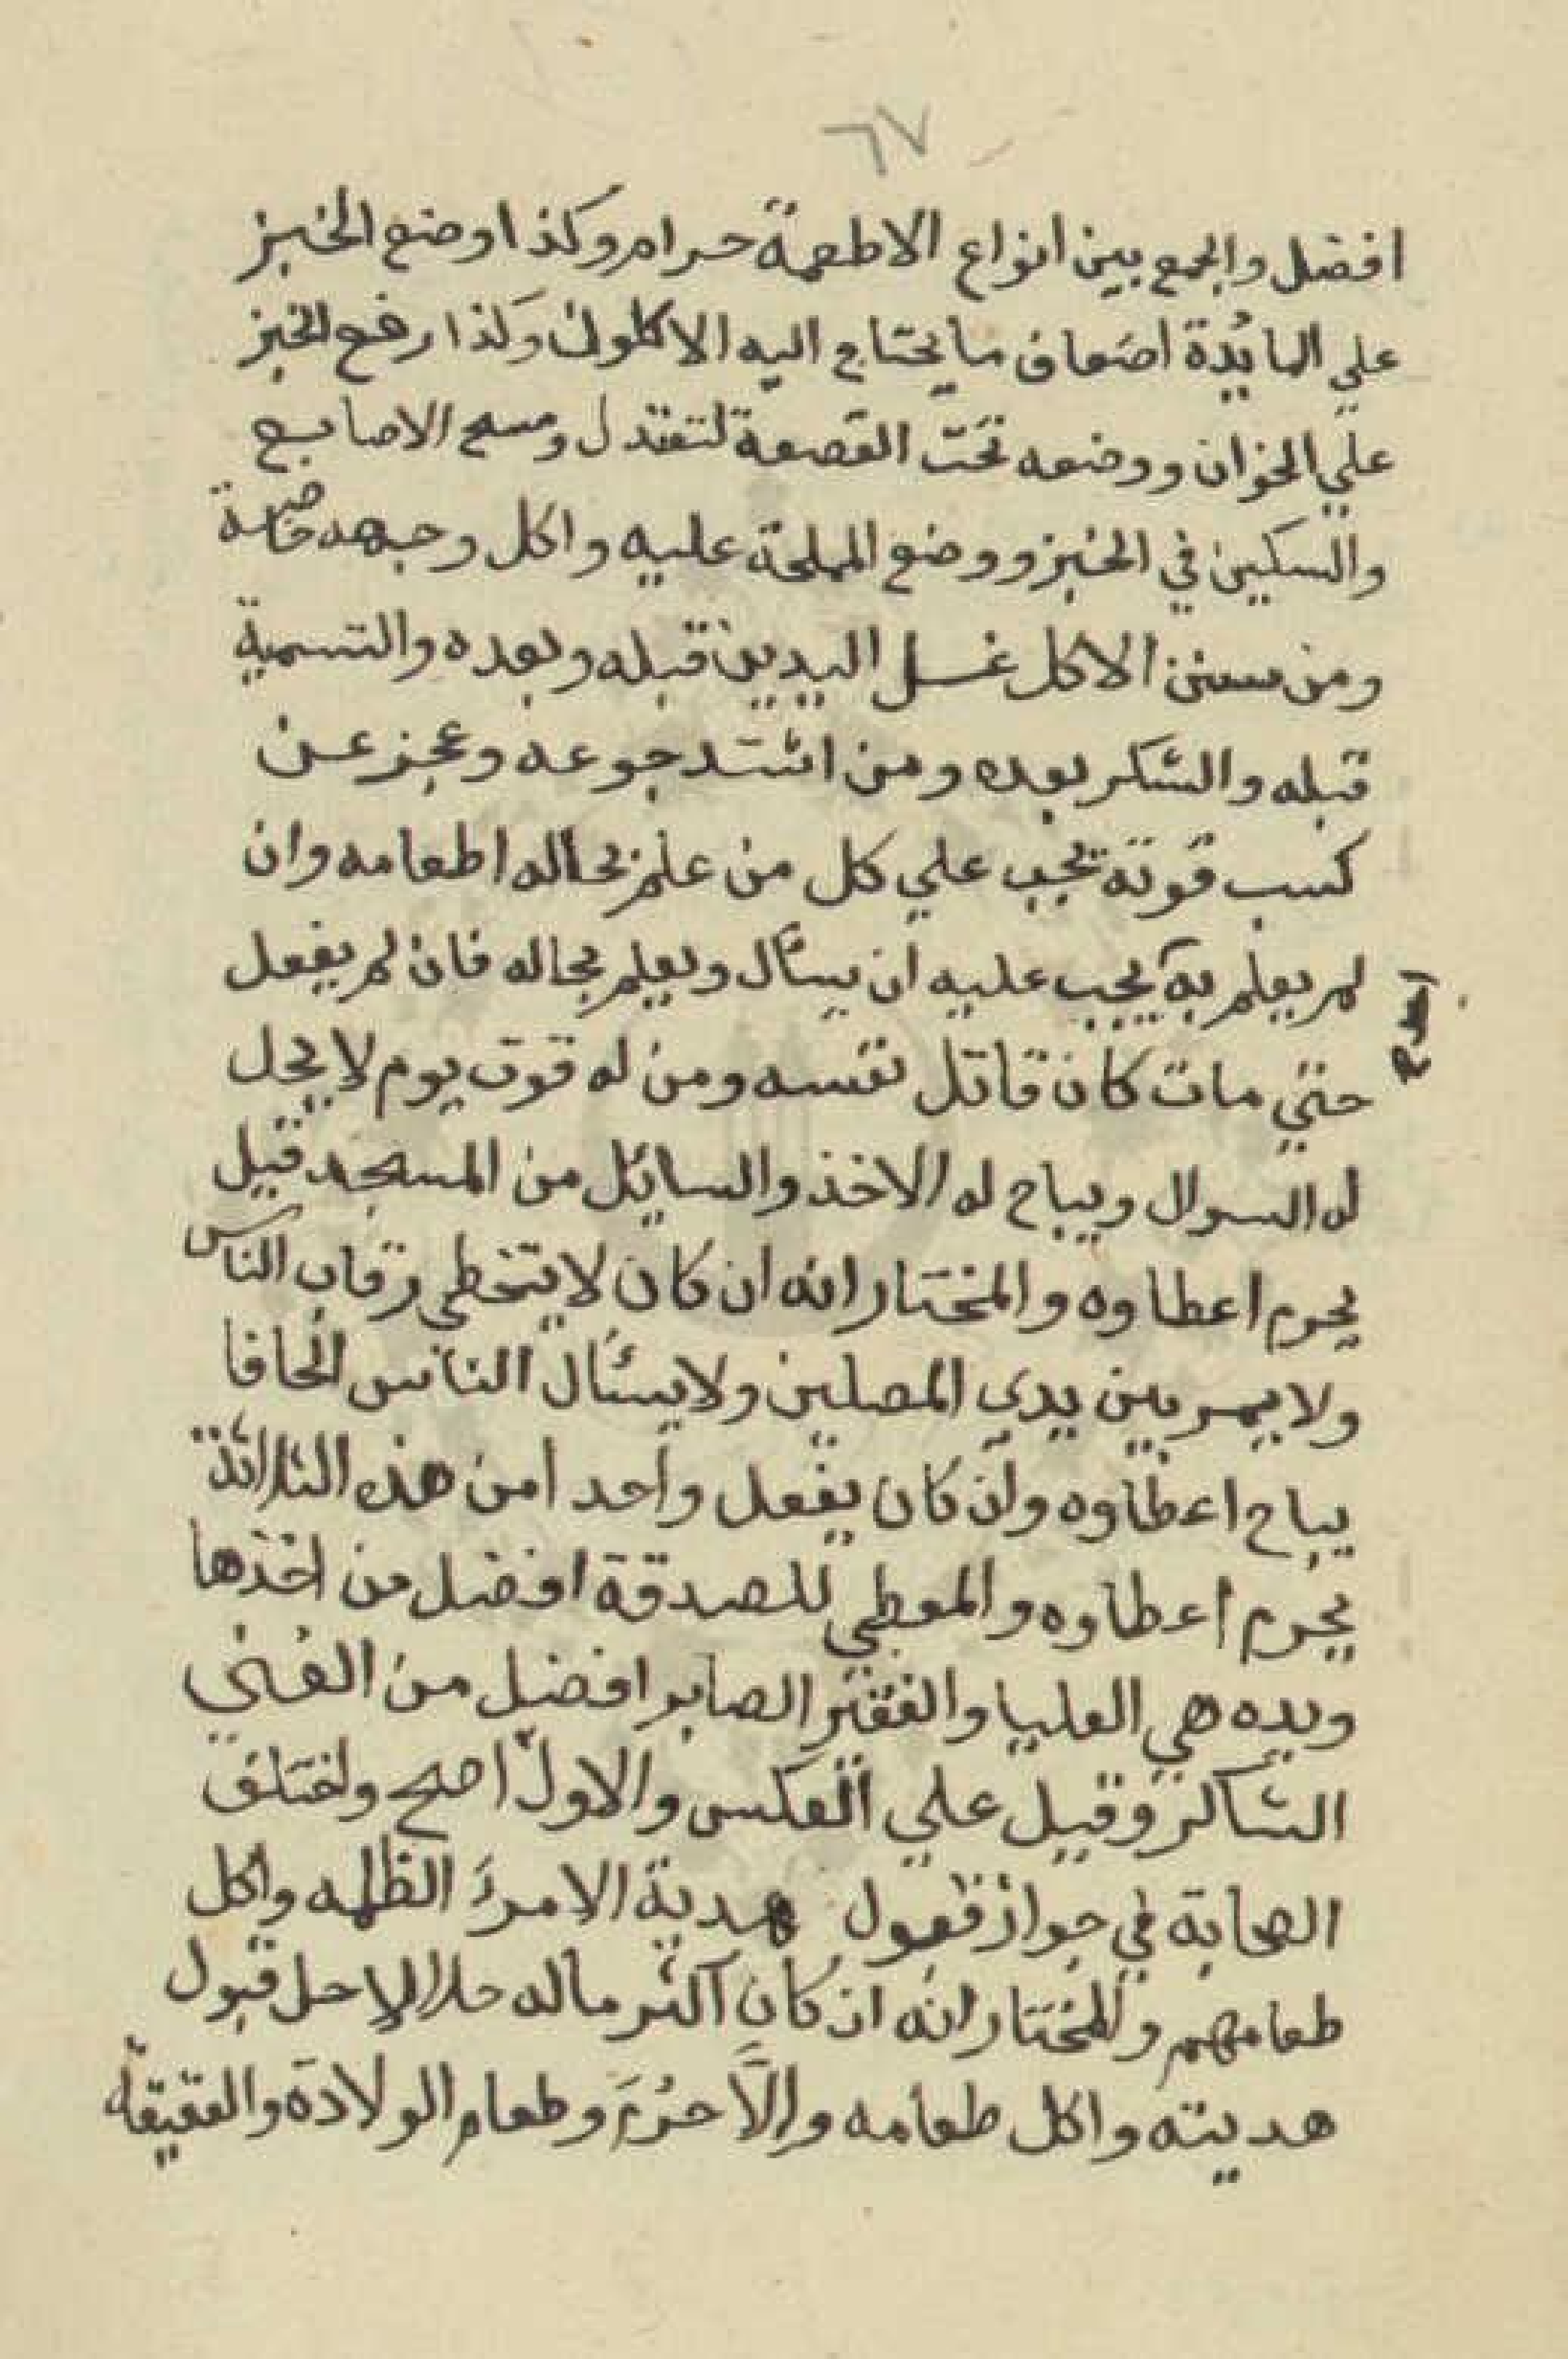 ٦٧
افضل والجمع بين انواع الاطعمة حرام وكذا وضع الخبز
علي المايدة اضعاف ما يحتاج اليه الاكلون وكذا رفع الخبز
علي الخوان ووضعه تحت القصعة لتعتدل ومسح الاصابع
والسكين في الخبز ووضع المملحة عليه واكل وجهه خاصة
ومن سنن الاكل غسل اليدين قبله وبعده والتسمية
قبله والشكر بعده ومن اشتد جوعه وعجز عن
كسب قوته يجب علي كل من علم بحاله اطعامه وان
لم يعلم به يجب عليه ان يسأل ويعلم بحاله فان لم يفعل
حتي مات كان قاتل نفسه ومن له قوت يوم لا يحل
له السوال ويباح له الاخذ والسايل من المسجد قيل
يحرم اعطاوه والمختار انه ان كان لا يتخطي رقاب الناس
ولا يمر بين يدي المصلين ولا يسأل الناس الحافا
يباح اعطاوه وان كان يفعل واحد امن هذه الثلاثة
يحرم اعطاوه والمعطي للصدقة افضل من اخذها
ويده هي العليا والفقير الصابر افضل من الغني
الشاكر وقيل علي العكس والاول اصح واختلف
الصحابة في جواز قبول هدية الامرءَ الظلمه واكل
طعامهم والمختار انه ان كان اكثر ماله حلالا حل قبول
هديته واكل طعامه والّا حرُمَ وطعام الولادة والعقيقة